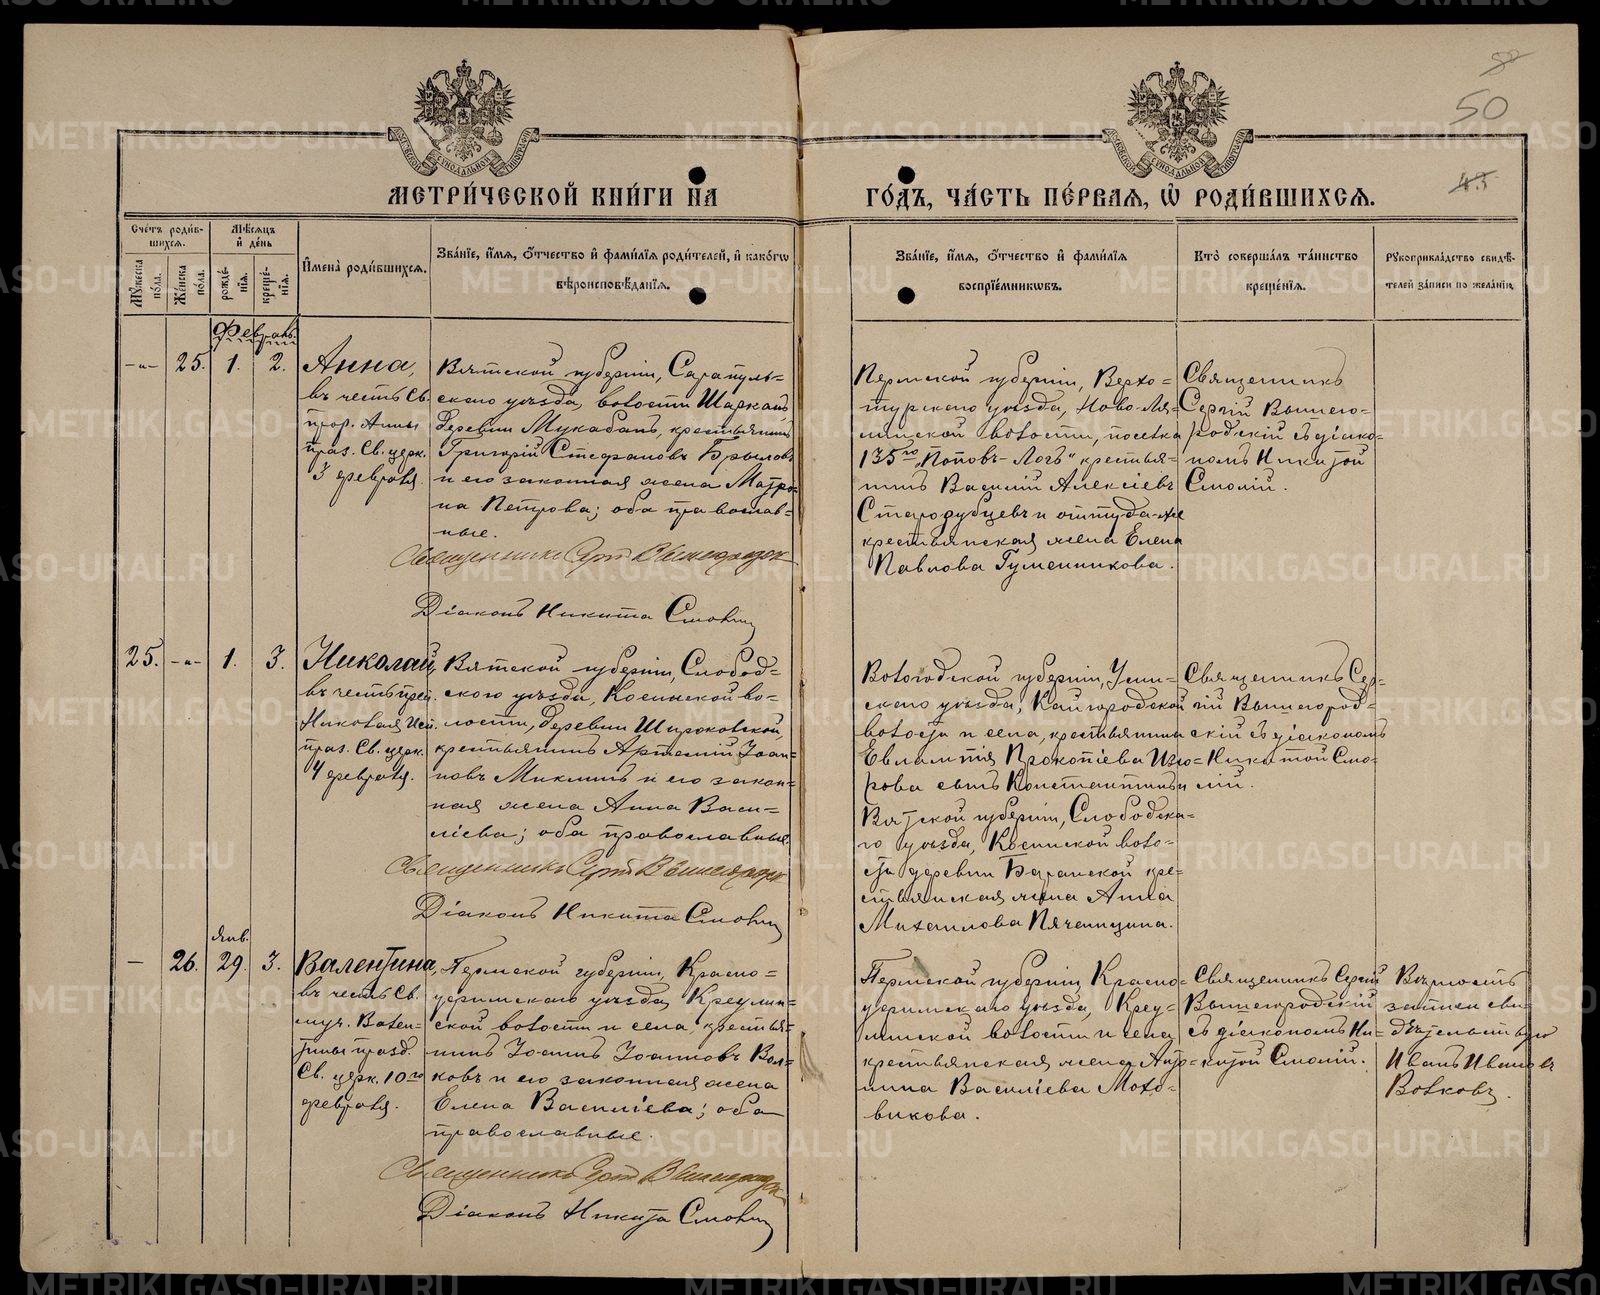 50
43
МЕТРИ́ЧЕСКОЙ КНИ́ГИ НА
ГО́ДЪ, ЧА́СТЬ ПЕ́РВАЯ, Ѡ РОДИ́ВШИХСЯ.
Сче́тъ роди́в-
шихся.
Мѣ́сяцъ
и де́нь
Мꙋ́жеска по́ла.
Же́нска по́ла.
рожде́-
нїя.
креще́-
нїя.
Имена̀ роди́вшихся.
Зва́нїе, и́мя, о́тчество и фами́лїя роди́телей, и како́гѡ
вѣроисповѣ́данїя.
Зва́нїе, и́мя, о́тчество и фами́лїя
воспрїе́мникѡвъ.
Кто̀ соверша́лъ та́инство
креще́нїя.
Рꙋкоприкла́дство свидѣ́-
телей за́писи по жела́нїю.
Февраль
-„- 25. 1. 2.
Анна,
въ честь Св.
прор. Анны
праз. Св. церк.
3 февраля.
Вятской губерніи, Сарапуль-
скаго уѣзда, волости Шаркан
деревни Мукабанъ, крестьянинъ
Григорій Стефановъ Брыловъ
и его законная жена Матро-
на Петрова; оба православ-
ные.
Священникъ Сергій Вышегородск
Діаконъ Никита Смолин
Пермской губерніи, Верхо-
турскаго уѣзда, Ново-Ля-
линской волости, поселка
135го „Поповъ-Логъ" крестья-
нинъ Василій Алексіевъ
Стародубцевъ и оттуда-же
крестьянская жена Елена
Павлова Гуменникова.
Священникъ
Сергій Вышего-
родскій съ діако-
номъ Никитой
Смолій.
25. -„- 1. 3.
Николай,
въ честь преп.
Николая Исп.
праз. Св. церк.
4 февраля.
Вятской губерніи, Слобод-
ского уѣзда, Косинской во-
лости, деревни Широковской,
крестьянинъ Артемій Іоан-
новъ Микшинъ и его закон-
ная жена Анна Васи-
ліева; оба православные.
Священникъ Сергій Вышегородск
Діаконъ Никита Смолин
Вологодской губерніи, Усы-
скаго уѣзда, Кайгородской
волости и села, крестьянина
Евлампія Прокопіева Изю-
рова сынъ Константинъ и
Вятской губерніи, Слободска-
го уѣзда, Косинской воло-
сти деревни Баранской кре-
стьянская жена Анна
Михаилова Пячешина.
Священникъ Сер-
гій Вышегород-
скій съ діакономъ
Никитой Смо-
лій.
Янв.
- 26. 29. 3.
Валентина,
въ честь Св.
муч. Вален-
тины празд.
Св. церк. 10го
февраля.
Пермской губерніи, Красно-
уфимскаго уѣзда, Креулин-
ской волости и села, крестья-
нинъ Іоаннъ Іоанновъ Вол-
ковъ и его законная жена
Елена Василіева; оба
православные.
Священникъ Сергій Вышегородск
Діаконъ Никита Смолин
Пермской губерніи, Красно-
уфимскаго уѣзда, Креу-
линской волости и села
крестьянская жена Анто-
нина Василіева Мохо-
викова.
Священникъ Сергій
Вышегородскій
съ діакономъ Ни-
китой Смолій.
Вѣрность
записи сви-
дѣтельствую
Иванъ Ивановъ
Волковъ.
METRIKI.GASO-URAL.RU